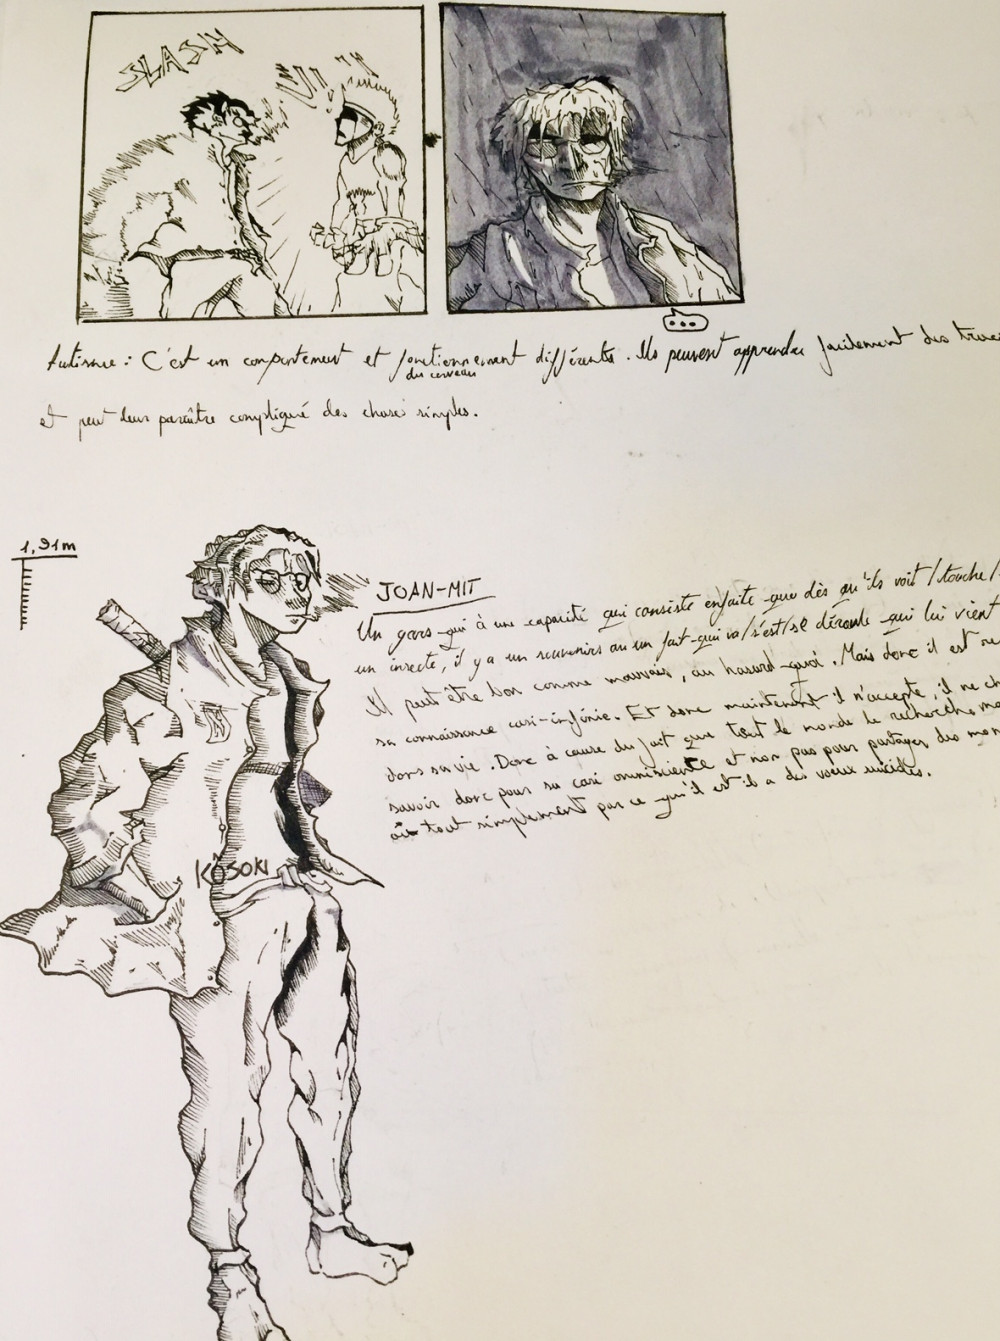 SLASH
...
Autisme : C'est un comportement et fonctionnement différents. Ils peuvent apprendre facilement des
du cerveau
et peut leur paraître compliqué des choses simples.
1,91m
JOAN-MIT
Un gars qui à une capacité qui consiste enfaite que dès qu'ils voit/touche/
un insecte, il y a un souvenirs ou un fait qui va/s'est/se déroule qui lui vient
Il peut être bon comme mauvais, au hasard quoi. Mais donc il est
sa connaissance casi-infinie. Et donc maintenant il n'accepte, il ne
dans sa vie. Donc à cause du fait que tout le monde le recherche
savoir donc pour sa casi omnisciente et non pas pour partager des
où tout simplement par ce qu'il est il a des voeux suicides.
KÔSOKI